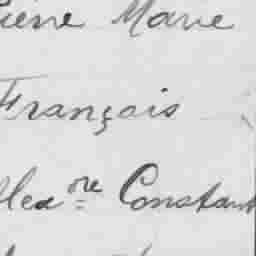 ierre Marie
François
Alexre Constant